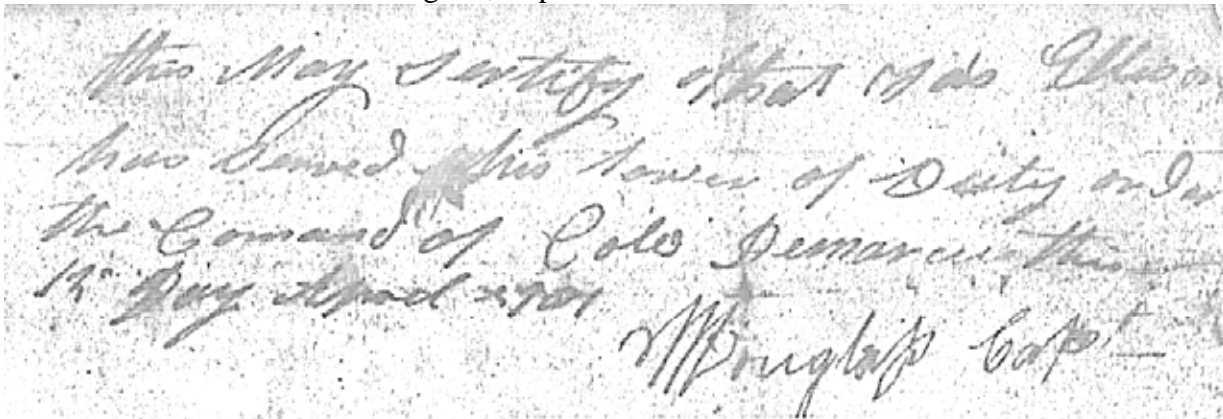 this May Sertify that Jas Ellison
has Served his tower of Duty onder
the Comand of Colo this
12 Day April 1781
Douglass Capt